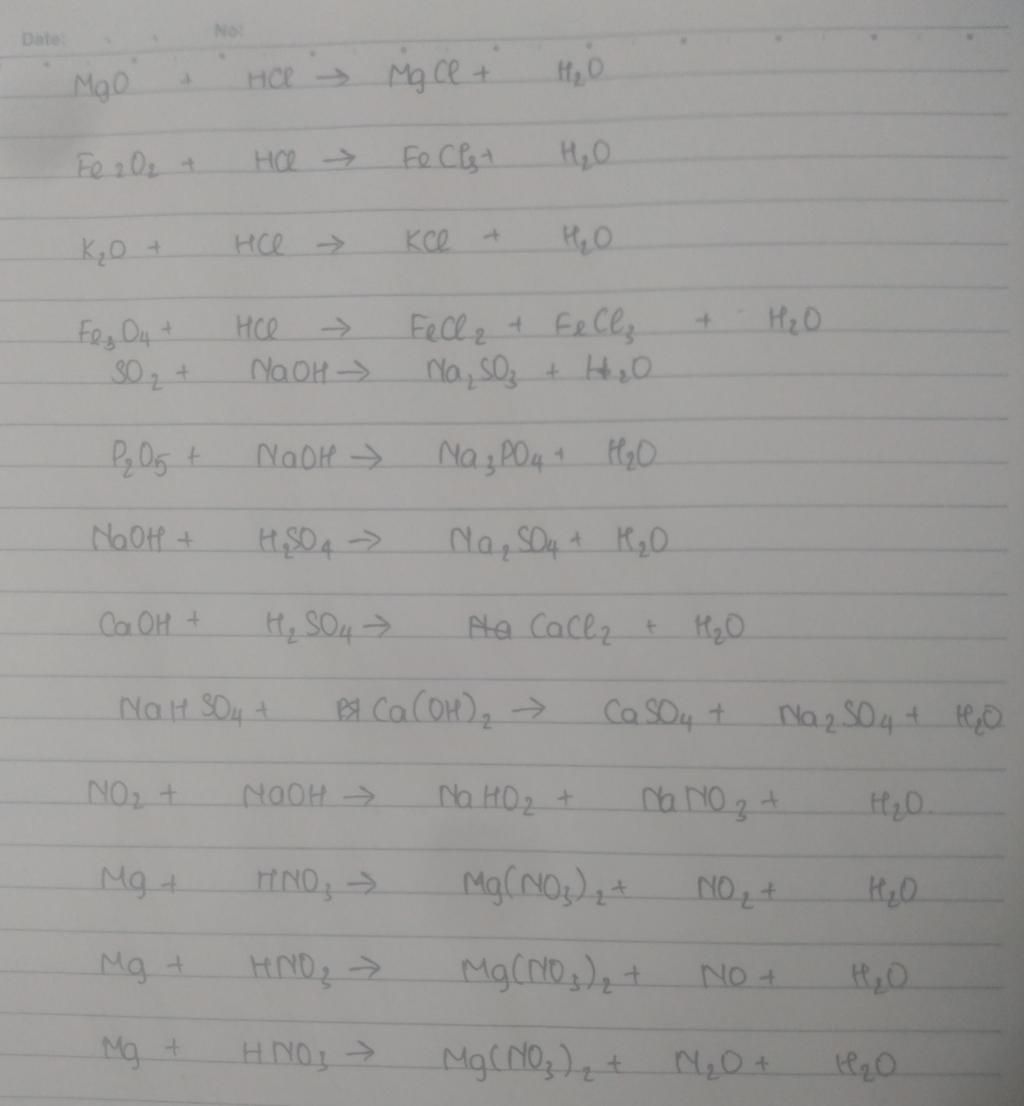 Date: No:
MgO + HCl → MgCl + H₂O
Fe₂O₂ + HCl → FeCl₃ + H₂O
K₂O + HCl → KCl + H₂O
Fe₃O₄ + HCl → FeCl₂ + FeCl₃ + H₂O
SO₂ + NaOH → Na₂SO₃ + H₂O
P₂O₅ + NaOH → Na₃PO₄ + H₂O
NaOH + H₂SO₄ → Na₂SO₄ + H₂O
CaOH + H₂SO₄ → CaCl₂ + H₂O
NaHSO₄ + Ca(OH)₂ → CaSO₄ + Na₂SO₄ + H₂O
NO₂ + NaOH → NaHO₂ + NaNO₃ + H₂O.
Mg + HNO₃ → Mg(NO₃)₂ + NO₂ + H₂O
Mg + HNO₃ → Mg(NO₃)₂ + NO + H₂O
Mg + HNO₃ → Mg(NO₃)₂ + N₂O + H₂O